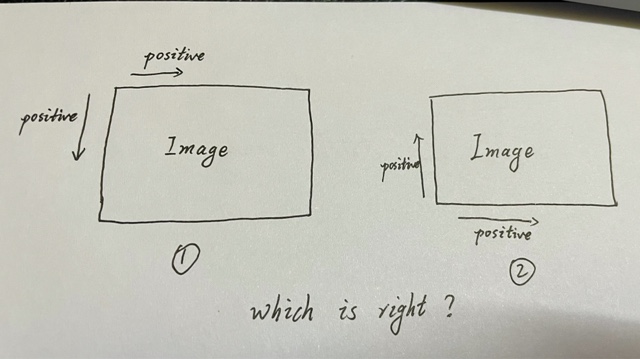 positive
positive
Image
①
positive
Image
positive
②
which is right ?